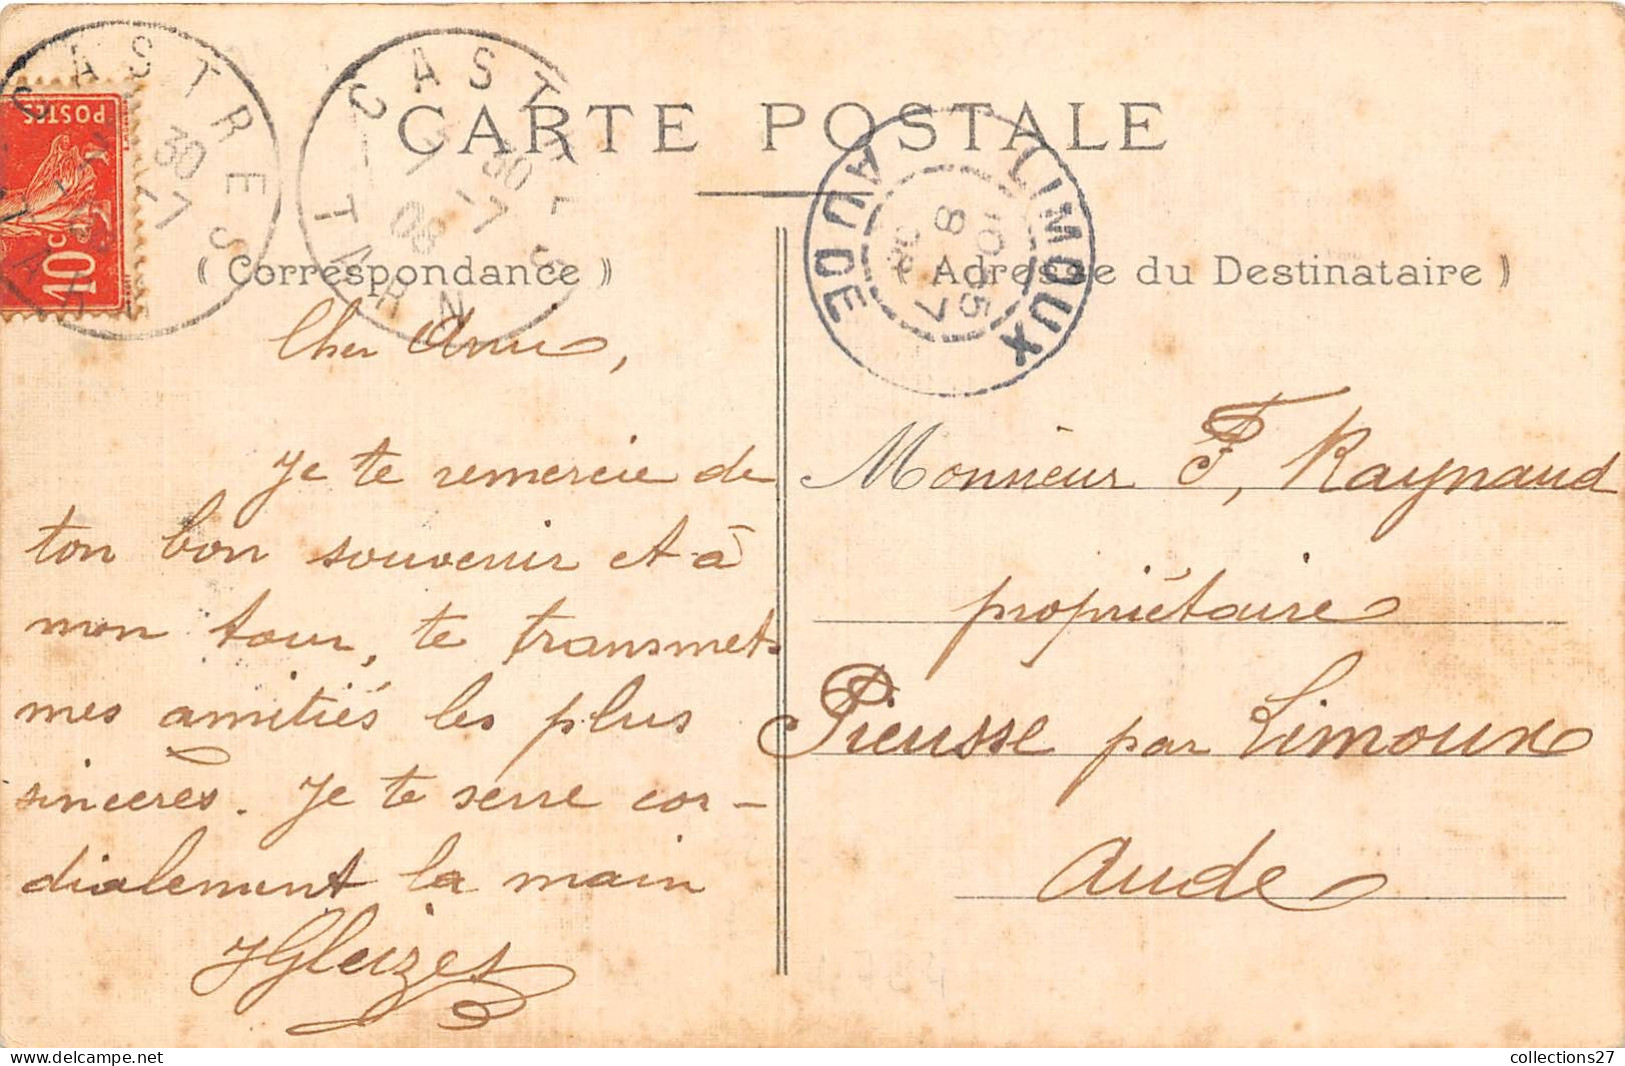 CARTE POSTALE
POSTES
10c
CASTRES
TARN
7 30
7-7
08
CASTRES
TARN
LIMOUX
AUDE
10 35
8 7
08
( Correspondance )
Cher Ami,
Je te remercie de
ton bon souvenir et à
mon tour, te transmets
mes amitiés les plus
sincères. Je te serre cor-
dialement la main
JGleizes
( Adresse du Destinataire )
Monsieur F, Raynaud
propriétaire
Pieusse par Limoux
Aude
collections27